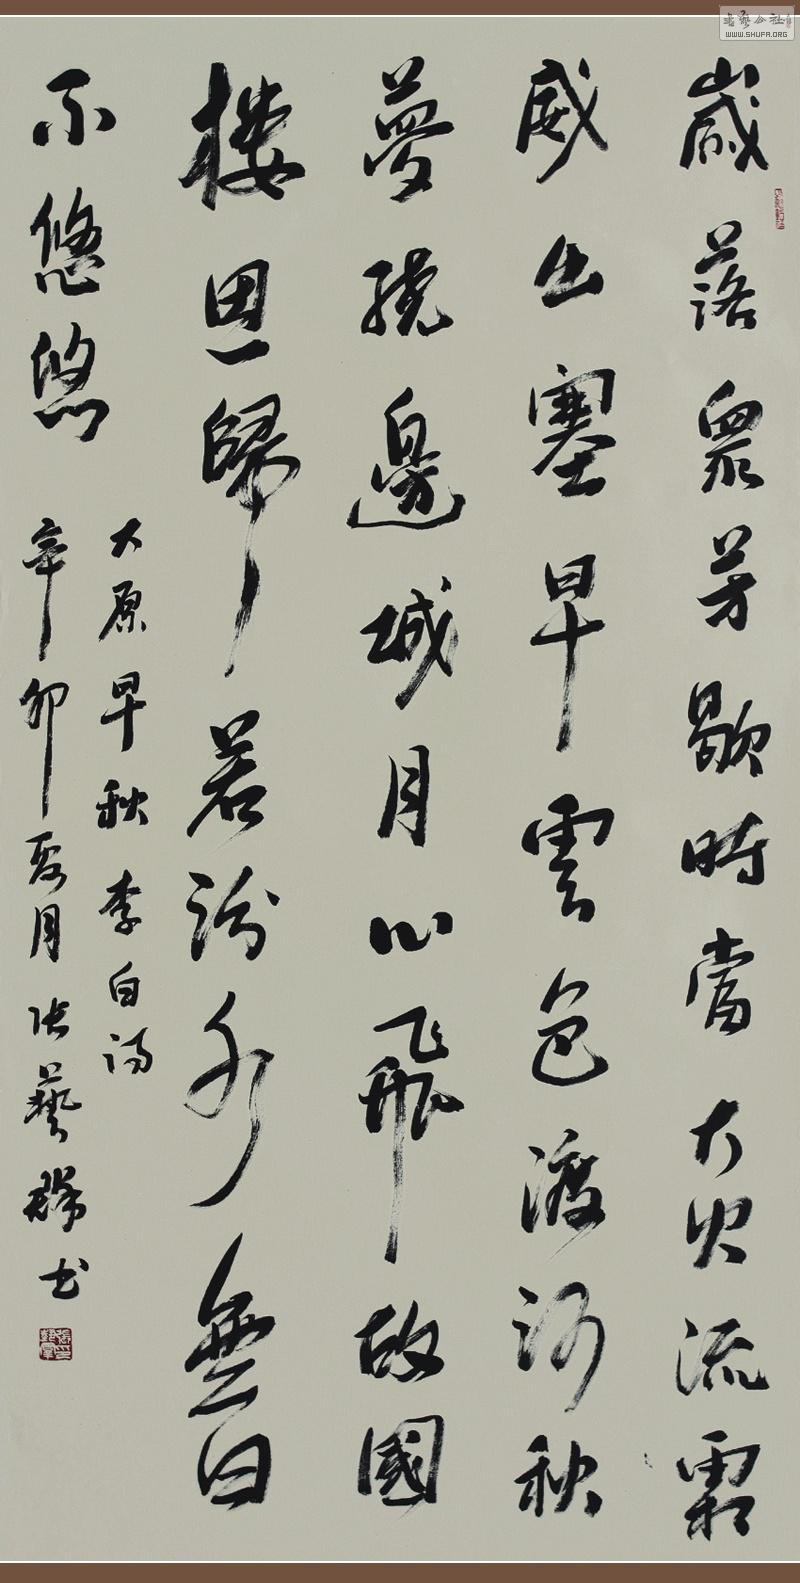 歲落眾芳歇時當大火流霜
威出塞早雲色渡河秋
夢繞邊城月心飛故國
樓思歸若汾水無日
不悠悠
太原早秋李白詩
辛卯夏月張藝群書
書藝公社
WWW.SHUFA.ORG